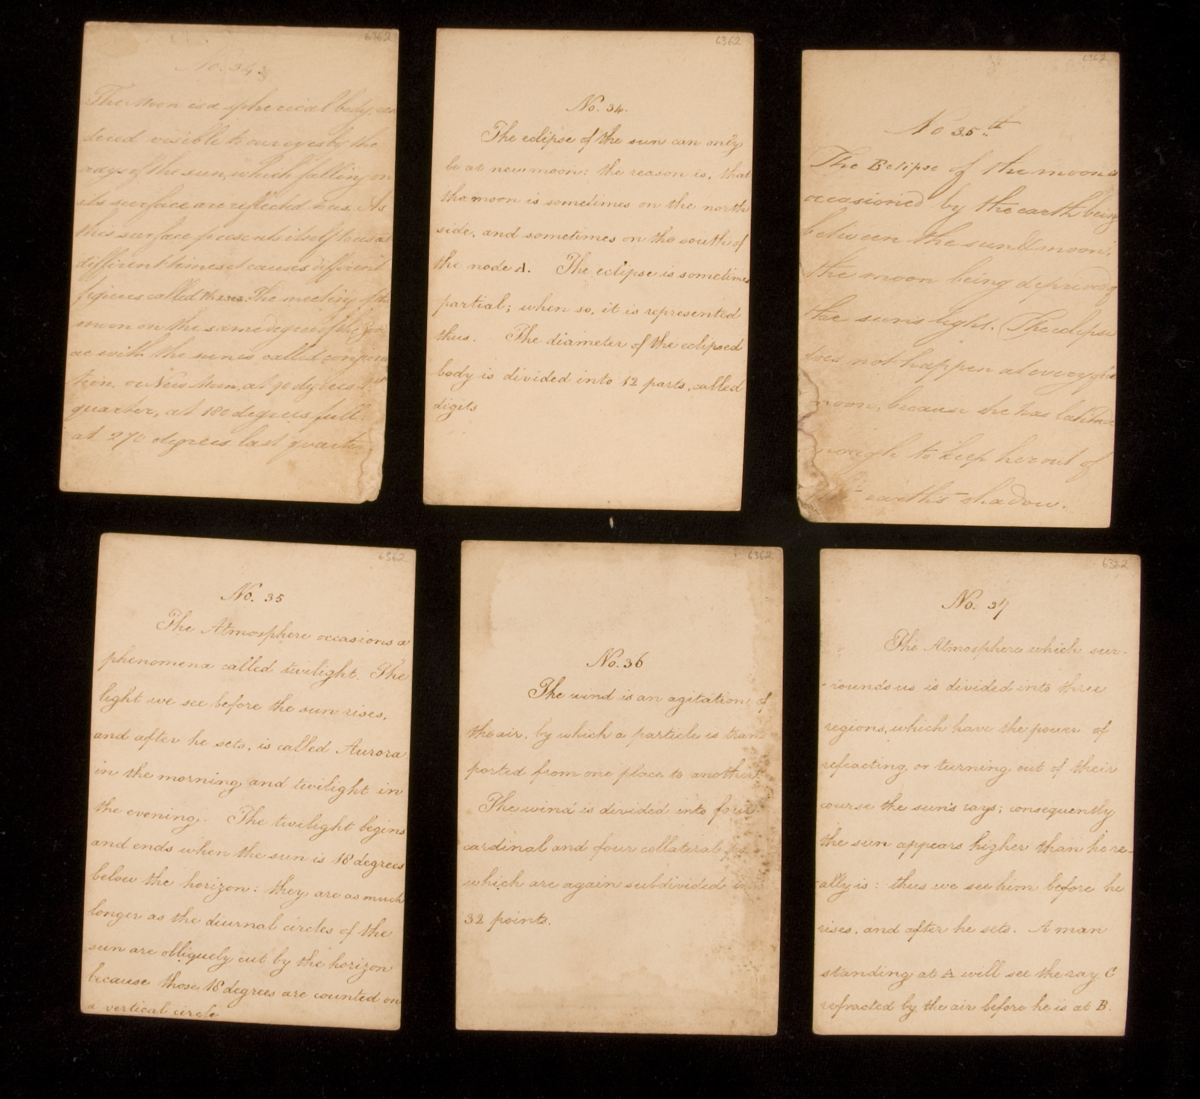 6362
No. 34.
The Moon is a spherical body, ren
dered visible to our eyes by the
rays of the sun, which falling on
its surface are reflected to us. As
this surface presents itself to us at
different times it causes different
figures called
The meeting of the
moon on the same degree of the
ac with the sun is called conjunc
tion, or New Moon, at 90 degrees
quarter, at 180 degrees full
at 270 degrees last quarter
6362
No. 34.
The eclipse of the sun can only
be at new moon: the reason is, that
the moon is sometimes on the north
side, and sometimes on the south of
the node A. The eclipse is sometimes
partial; when so, it is represented
thus. The diameter of the eclipsed
body is divided into 12 parts, called
digits
6362
No 35th
The Eclipse of the moon is
occasioned by the earth being
between the sun & moon,
the moon being deprived of
the sun's light. The eclipse
does not happen at every
moon, because she has latitude
enough to keep her out of
earth's shadow.
6362
No. 35
The Atmosphere occasions a
phenomena called twilight. The
light we see before the sun rises,
and after he sets, is called Aurora
in the morning and twilight in
the evening. The twilight begins
and ends when the sun is 18 degrees
below the horizon: they are as much
longer as the diurnal circles of the
sun are obliquely cut by the horizon
because those 18 degrees are counted on
a vertical circle
6362
No. 36
The wind is an agitation of
the air, by which a particle is trans
ported from one place to another
The wind is divided into four
cardinal and four collateral
which are again subdivided
32 points.
6362
No. 37
The Atmosphere which sur-
-rounds us is divided into three
regions, which have the power of
refracting, or turning out of their
course the sun's rays; consequently
the sun appears higher than he re-
-ally is: thus we see him before he
rises, and after he sets. A man
standing at A will see the ray C
refracted by the air before he is at B.